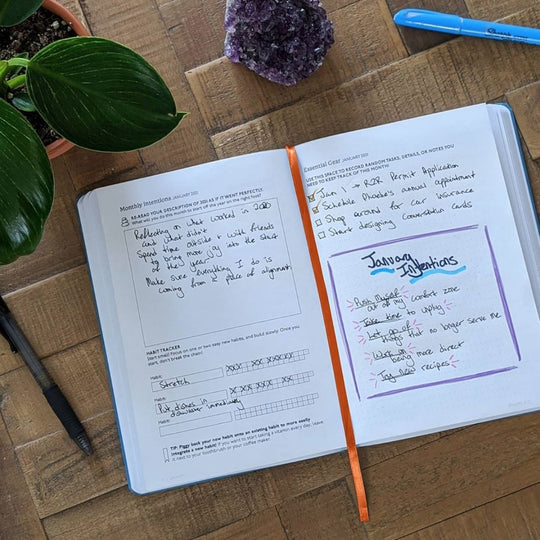 Monthly Intentions JANUARY 2021
RE-READ YOUR DESCRIPTION OF 2021 AS IF IT WENT PERFECTLY.
What will you do this month to start off the year on the right foot?
Reflecting on what worked in 2020
and what didn't
Spend time outside + with friends
to bring more joy into the start
of the year
Make sure everything I do is
coming from a place of alignment
HABIT TRACKER
Start small! Focus on one or two easy new habits, and build slowly. Once you
start, don't break the chain!
Habit:
Stretch
Habit:
Put dishes in
dishwasher immediately
Habit:
TIP: Piggy back your new habit onto an existing habit to more easily
integrate a new habit! If you want to start taking a vitamin every day, leave
it next to your toothbrush or your coffee maker.
Essential Gear JANUARY 2021
USE THIS SPACE TO RECORD RANDOM TASKS, DETAILS, OR NOTES YOU
NEED TO KEEP TRACK OF THIS MONTH!
Jan 1 → R2R Permit Application
Schedule Phoebe's annual appointment
Shop around for car insurance
Start designing conversation cards
January
Intentions
Push myself
out of my comfort zone
Take time to unplug
Let go of
things that no longer serve me
Work on
being more direct
Try new recipes